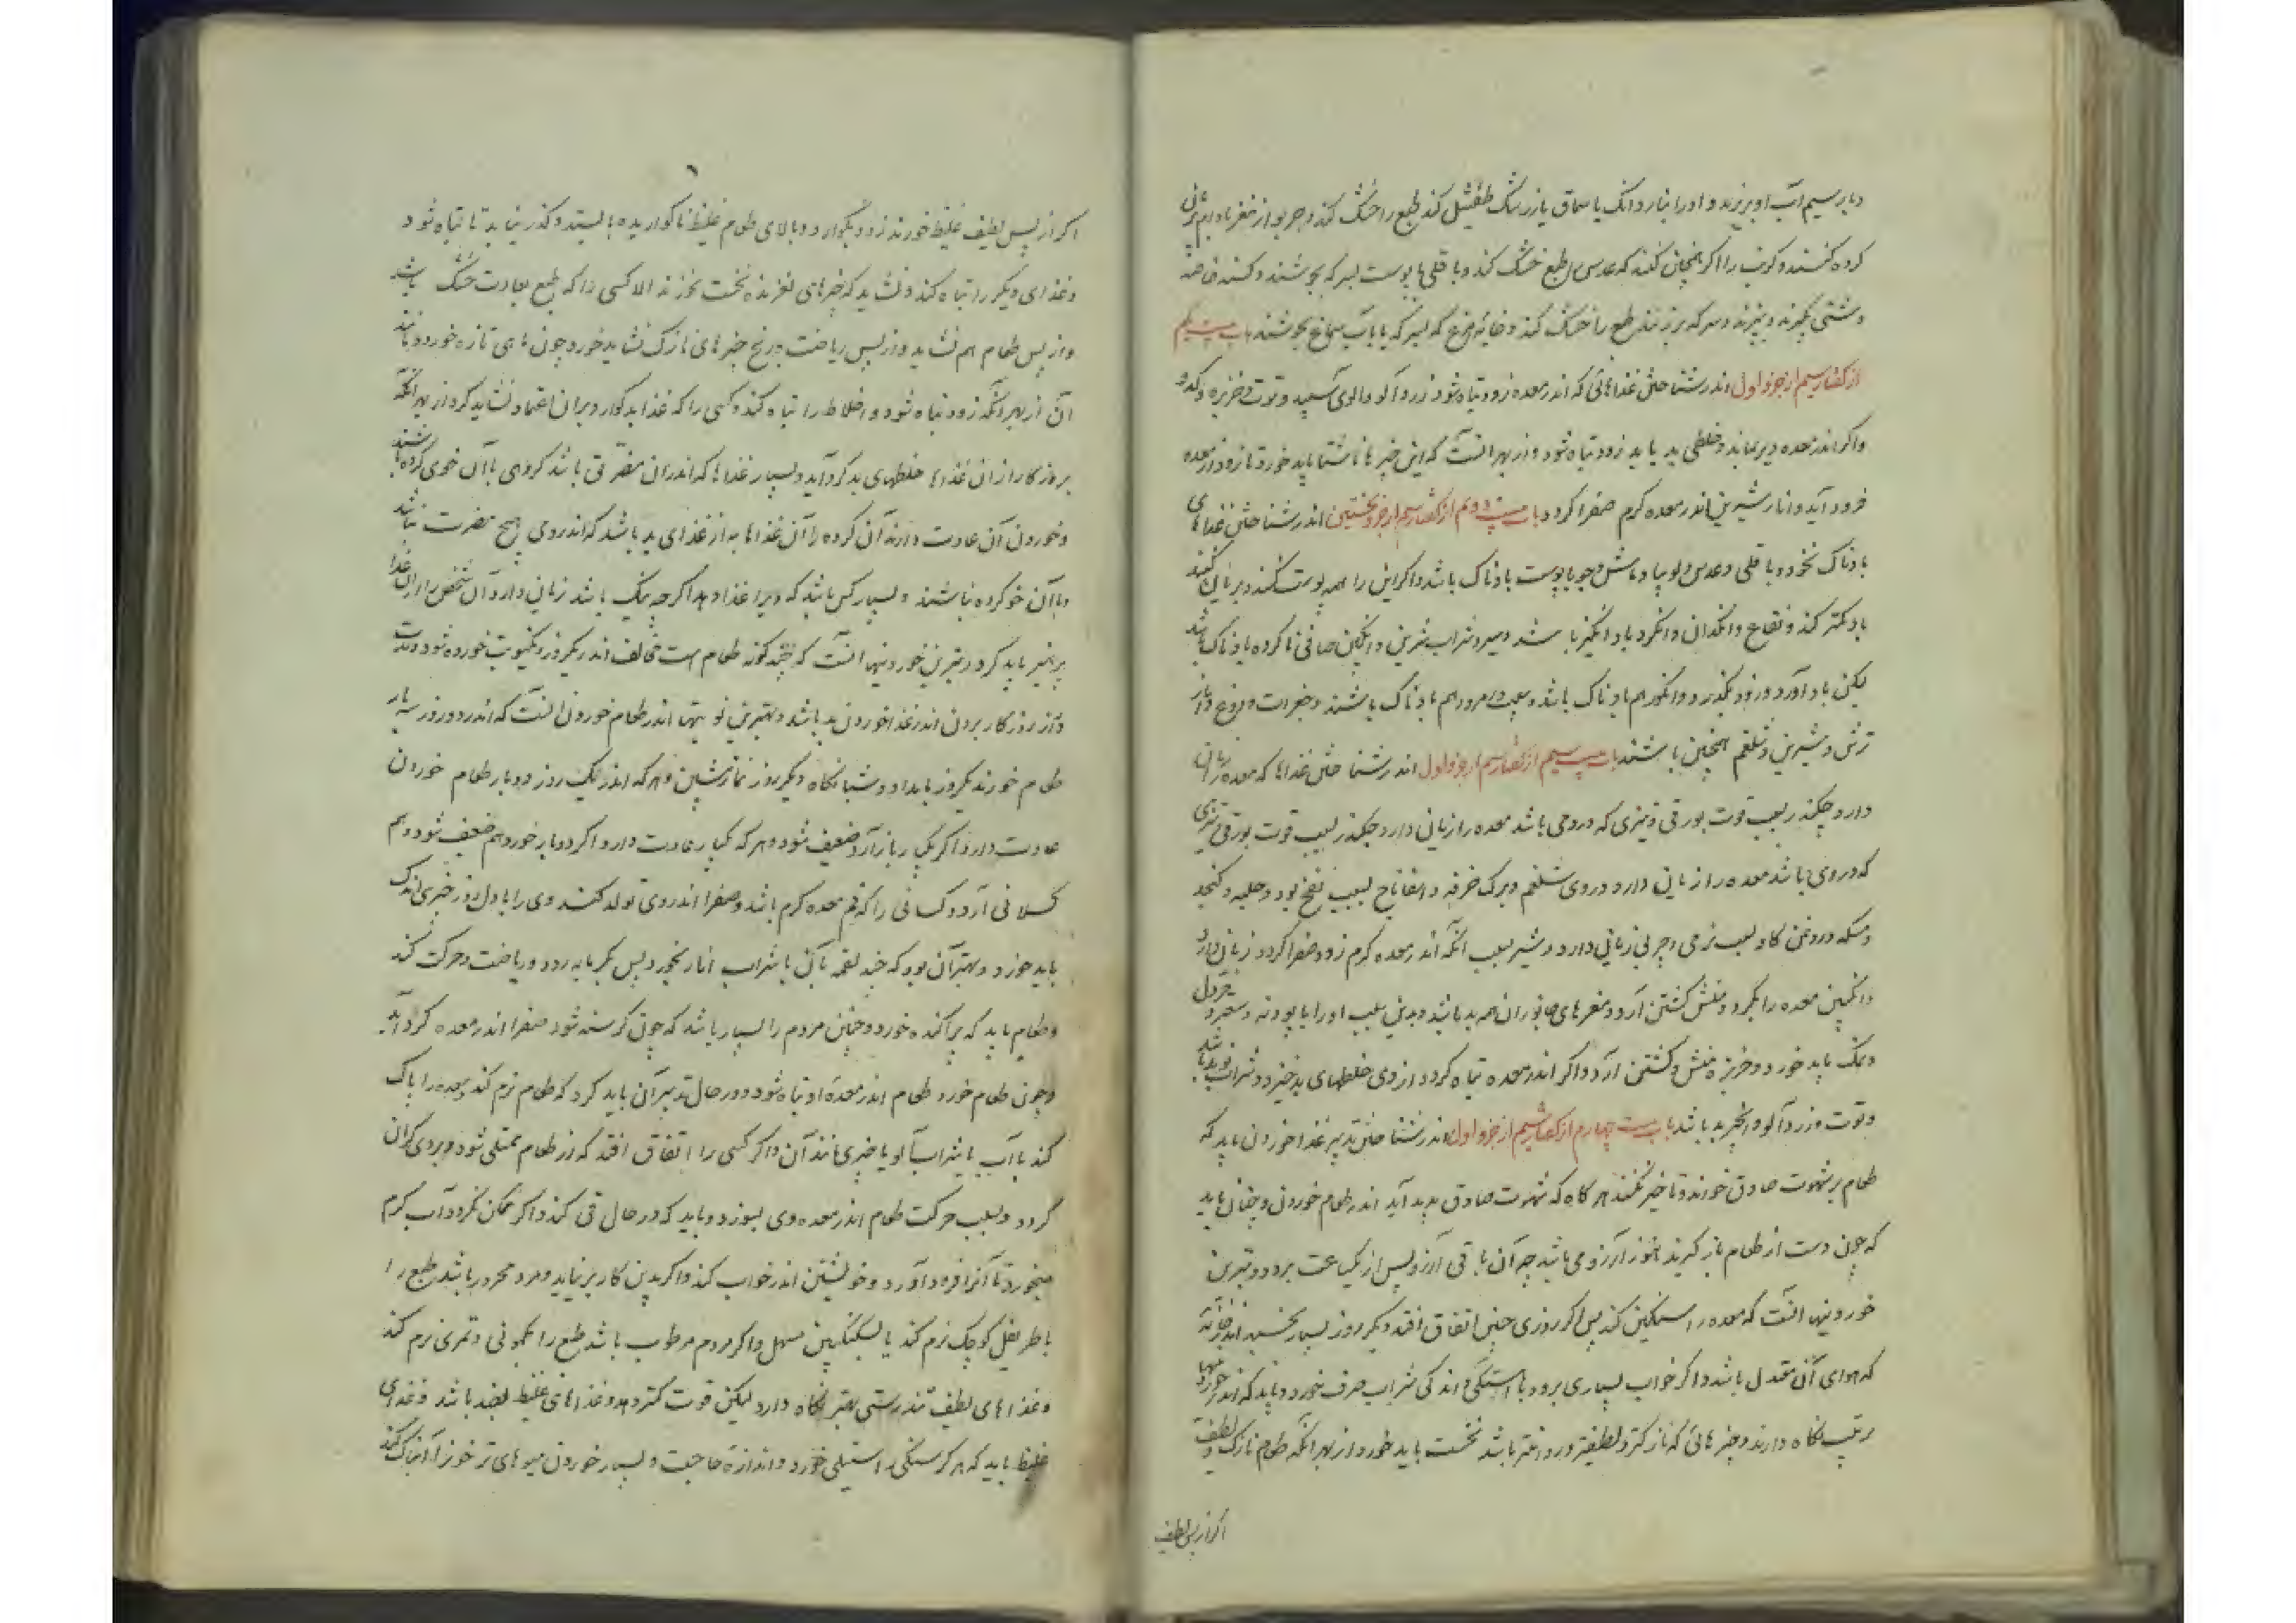 و بار سیم آب او بریزند و او را بناردانک یا سماق یا زرشک طفشیل کند طبع را خشک کند و هر بوارد از مغز بادام بریان
کرده کنند و کرنب را اگر همچنان کنند که عدس را طبع خشک کند و باقلی با پوست بسرکه بجوشند و کسنه خاصه
دشتی بگیرند و بپزند و سرکه برنهند طبع را خشک کند و خایه مرغ که بسرکه یا بآب سماغ بجوشند باب بیست یکم
از گفتار سیم از جزو اول اندر شناختن غذاهائی که اندر معده زود تباه شود زردآلو و آلوی سپید و توت و خربزه و کدو
واگر اندر معده دیر بماند و خلطی بد یابد زود تباه شود و از بهر آنست که این چیزها ناشتا باید خورد تا زود از معده
فرود آید و انار شیرین اندر معده گرم صفرا گردد باب بیست و دوم از گفتار سیم از جزو نخستین اندر شناختن غذاهای
بادناک نخود و باقلی و عدس و لوبیا و ماش و جو با پوست بادناک باشد و اگر این را همه پوست کنند و بریان کنند
باد کمتر کند و فقاع و انگدان و انگرد باد انگیز باشند و سیر و شراب شیرین و انگبین صافی ناکرده بادناک باشد
لیکن باد آورد و زود بگذرد و انگور هم بادناک باشد و سیب و مرود هم بادناک باشند و خیرات و دوغ و انار
ترش و شیرین و شلغم همچنین باشند باب بیست سیم از گفتار سیم از جزو اول اندر شناختن غذاها که معده را زیان
دارد چکندر بسبب قوت بورقی و تیزی که در وی باشد معده را زیانی دارد چکندر بسبب قوت بورقی و تیزی
که در وی باشد معده را زیان دارد و در وی شلغم و برک خرفه و اسفاناخ بسبب نفخ بود و حلبه و کنجد
و مسکه و روغن کاو بسبب نرمی و چربی زیانی دارد و شیر بسبب آنکه اندر معده گرم زود صفرا گردد زیان دارد
و انگبین معده را بگرد و منش کشتن آرد و مغزهای جانوران همه بد باشد و بدین سبب او را با پودنه و سعتر و خردل
و نمک باید خورد و خربزه منش کشتن آرد و اگر اندر معده تباه گردد از وی خلطهای بد خیزد و شراب نو بد باشد
و توت و زردآلو و انجیر بد باشد باب بیست چهارم از گفتار سیم از جزو اول اندر شناختن تدبیر غذا خوردن باید که
طعام بر شهوت صادق خورند و تاخیر نکنند هرگاه که شهوت صادق پدید آید اندر طعام خوردن و چنان باید
که چون دست از طعام باز گیرند هنوز آرزو می باشد چه آن باقی آرزو پس از یکساعت برود و بترین
خوردنیها آنست که معده را سنگین کند پس اگر روزی چنین اتفاق افتد دیگر روز بسیار بخسبد اندر خانه
که هوای آن معتدل باشد و اگر خواب بسیاری برود باهستگی و اندکی شراب صرف خورد و باید که اندر خوردنیها
ترتیب نگاه دارند و چیزهائی که نازکتر و لطیفتر و رواتتر باشد نخست باید خورد از بهر آنکه طعام نازک و لطیف
اگر از پس لطیف
۶
اگر از پس لطیف غلیظ خورند زود بگوارد و بالای طعام غلیظ ناگواریده بایستد و گذر نیابد تا تباه شود
و غذای دیگر را تباه کند و نشاید که چیزهای لغزنده نخست خورند الا کسی را که طبع بعادت خشک باشد
و از پس طعام هم نشاید و از پس ریاضت و رنج چیزهای نازک نشاید خورد چون ماهی تازه خورد و مانند
آن از بهر آنکه زود تباه شود و اخلاط را تباه کند و کسی را که غذا بد گوارد بر آن اعتماد نشاید کرد از بهر آنکه
بروزگار از آن غذاها خلطهای بد گرد آید و بسیار غذاها که اندران مضرتی باشد گروهی با آن خوی کرده باشند
و خوردن آن عادت دارند آن گروه را آن غذاها به از غذای بد باشد که اندر وی هیچ مضرت نباشد
و با آن خو کرده نباشند و بسیار کس باشد که ویرا غذا دهد اگرچه نیک باشد زیانی دارد آن شخص را از آن غذا
پرهیز باید کرد و بترین خوردنیها آنست که چند گونه طعام است مخالف اندر یکروز و یکنوبت خورده شود و مدت
و از روزگار بردن اندر غذا خوردن بد باشد و بهترین نوبتها اندر طعام خوردن آنست که اندر دو روز سه بار
طعام خورند یکروز بامداد و شبانگاه و دیگر روز نماز پیشین و هر که اندر یک روز دو بار طعام خوردن
عادت دارد اگر یکبار باز آرد ضعیف شود و هر که یکبار عادت دارد اگر دوبار خورد هم ضعیف شود و هم
کسلانی آرد و کسانی را که فم معده گرم باشد و صفرا اندر وی تولد کند وی را باول روز چیزی اندک
باید خورد و بهتر آن بود که چند لقمه نان با شراب انار بخورد پس بگرمابه رود و ریاضت و حرکت کند
و طعام باید که پراکنده خورد و چنین مردم را بسیار باشد که چون گرسنه شود صفرا اندر معده گرد آید
و چون طعام خورد طعام اندر معده او تباه شود و در حال تدبیر آن باید کرد که طعام نرم کند و معده را پاک
کند با آب یا شراب آلو یا چیزی مانند آن و اگر کسی را اتفاق افتد که از طعام ممتلی شود و بر وی گران
گردد و بسبب حرکت طعام اندر معده وی بسوزد و باید که در حال قی کند و اگر ممکن نگردد آب گرم
میخورد تا آنرا فرود آورد و خویشتن اندر خواب کند و اگر بدین کار برنیاید و مرد محرور باشد طبع را
باطریفل کوچک نرم کند یا بسکنگبین مسهل و اگر مردم مرطوب باشد طبع را بکمونی و تمری نرم کند
و غذاهای لطیف تندرستی بهتر نگاه دارد لیکن قوت کمتر دهد و غذاهای غلیظ بضد باشد و غذای
غلیظ باید که بر گرسنگی راستی خورد و اندازه حاجت و بسیار خوردن میوهای تر خون را آبناک کند